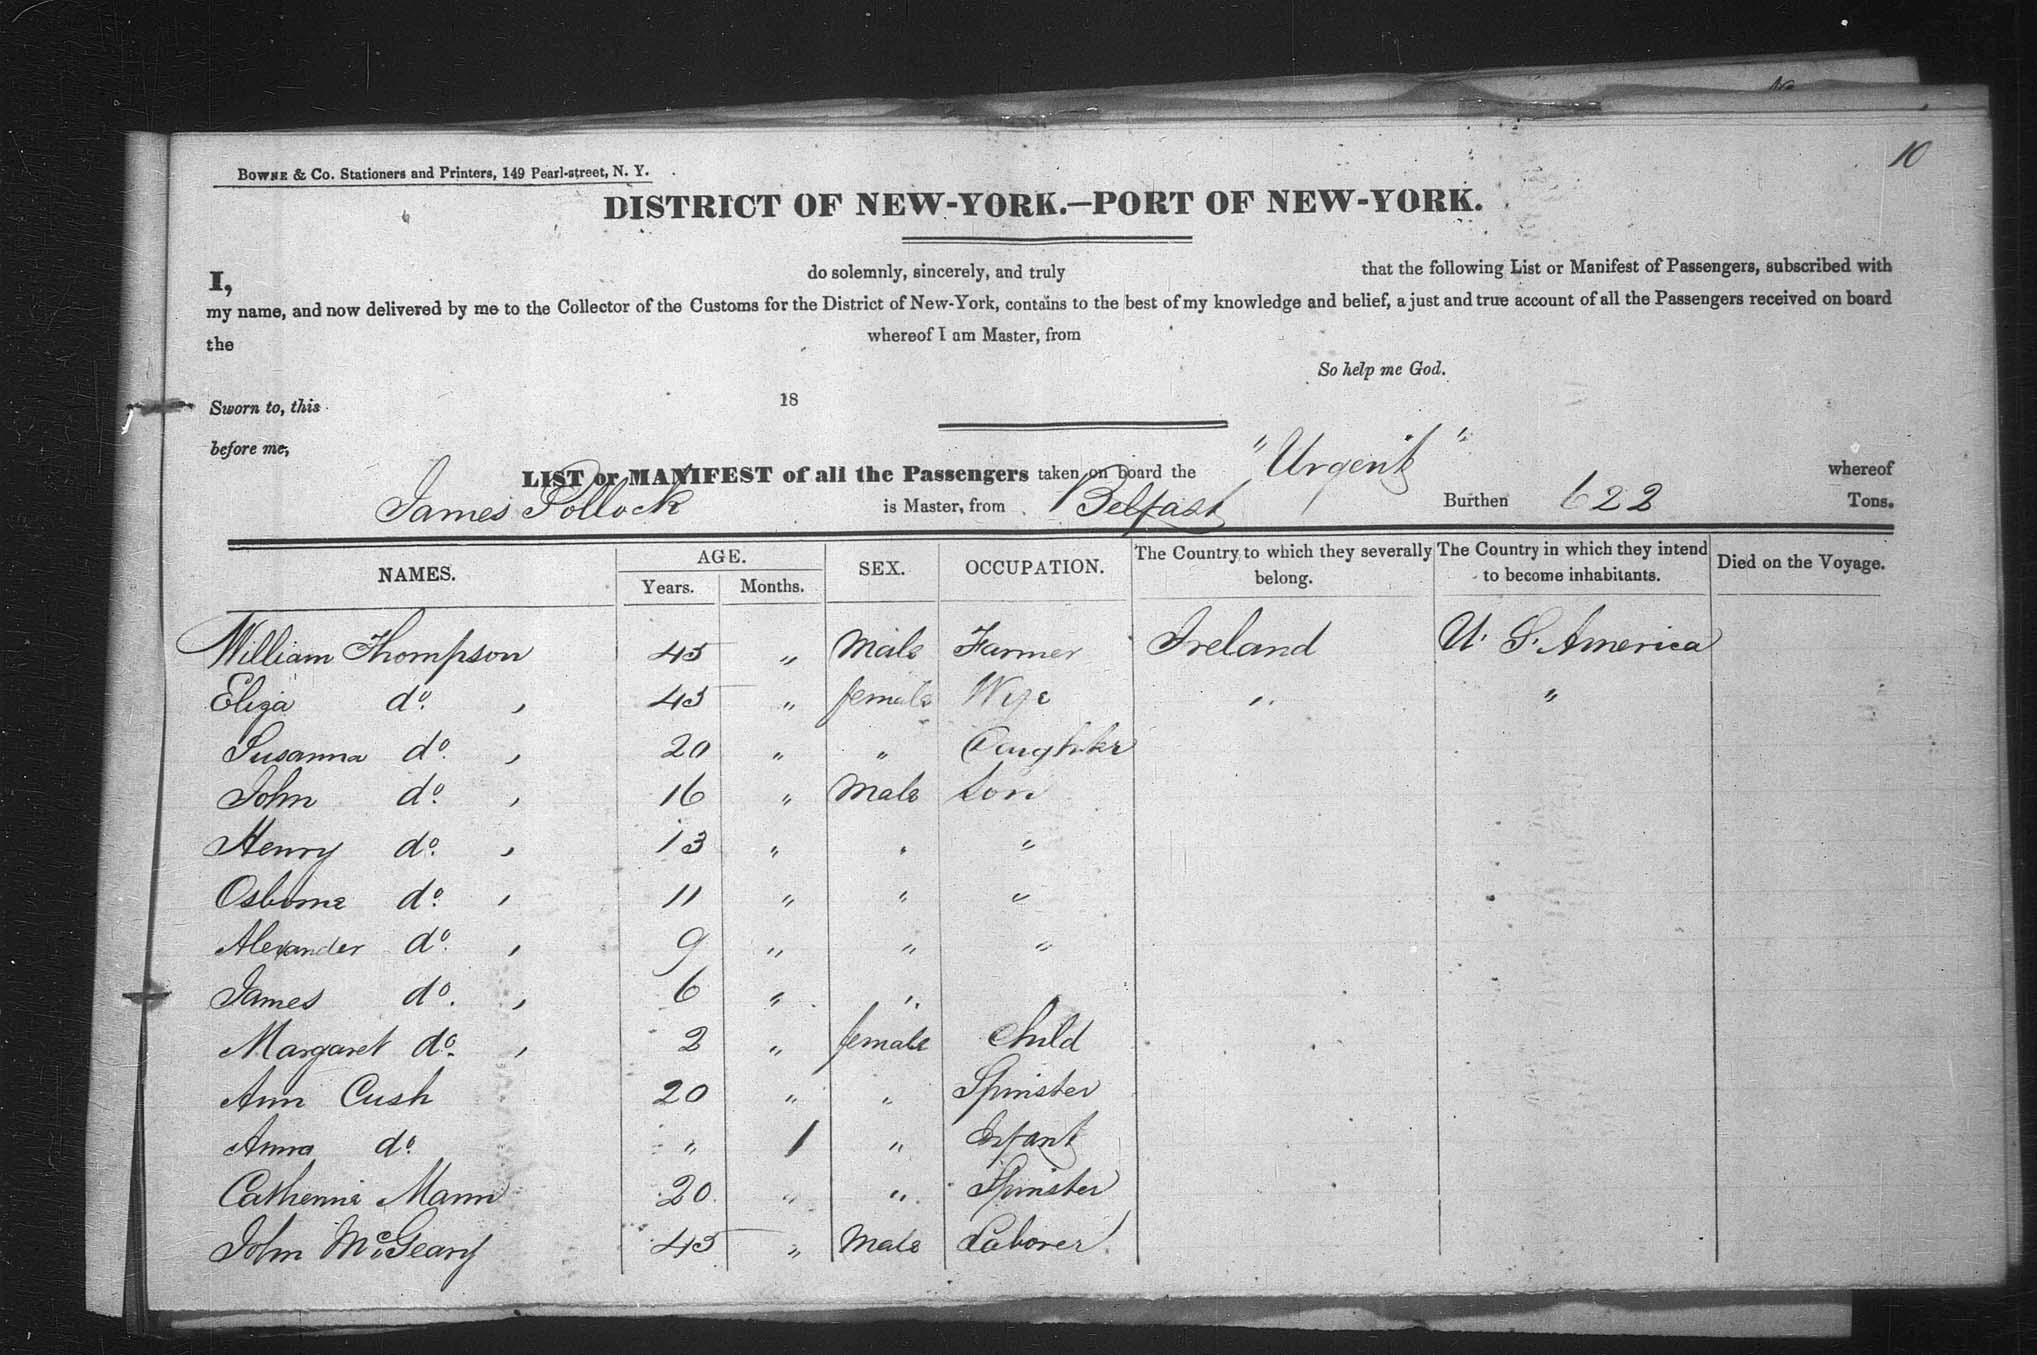 10
BOWNE & Co. Stationers and Printers, 149 Pearl-street, N. Y.
DISTRICT OF NEW-YORK.—PORT OF NEW-YORK.
I, do solemnly, sincerely, and truly that the following List or Manifest of Passengers, subscribed with
my name, and now delivered by me to the Collector of the Customs for the District of New-York, contains to the best of my knowledge and belief, a just and true account of all the Passengers received on board
the whereof I am Master, from
So help me God.
Sworn to, this 18
before me,
LIST or MANIFEST of all the Passengers taken on board the "Urgent" whereof
James Pollock is Master, from Belfast Burthen 622 Tons.
NAMES. AGE. Years. Months. SEX. OCCUPATION. The Country to which they severally belong. The Country in which they intend to become inhabitants. Died on the Voyage.
William Thompson 45 " Male Farmer Ireland U. S. America
Eliza do. , 45 " female Wife " "
Susanna do. , 20 " " Daughter
John do. , 16 " Male Son
Henry do. , 13 " " "
Osborne do. , 11 " " "
Alexander do. , 9 " " "
James do. , 6 " "
Margaret do. , 2 " female Child
Ann Cush 20 " " Spinster
Anna do. " 1 " Infant
Catherine Mann 20 " " Spinster
John McGeary 45 " Male Laborer